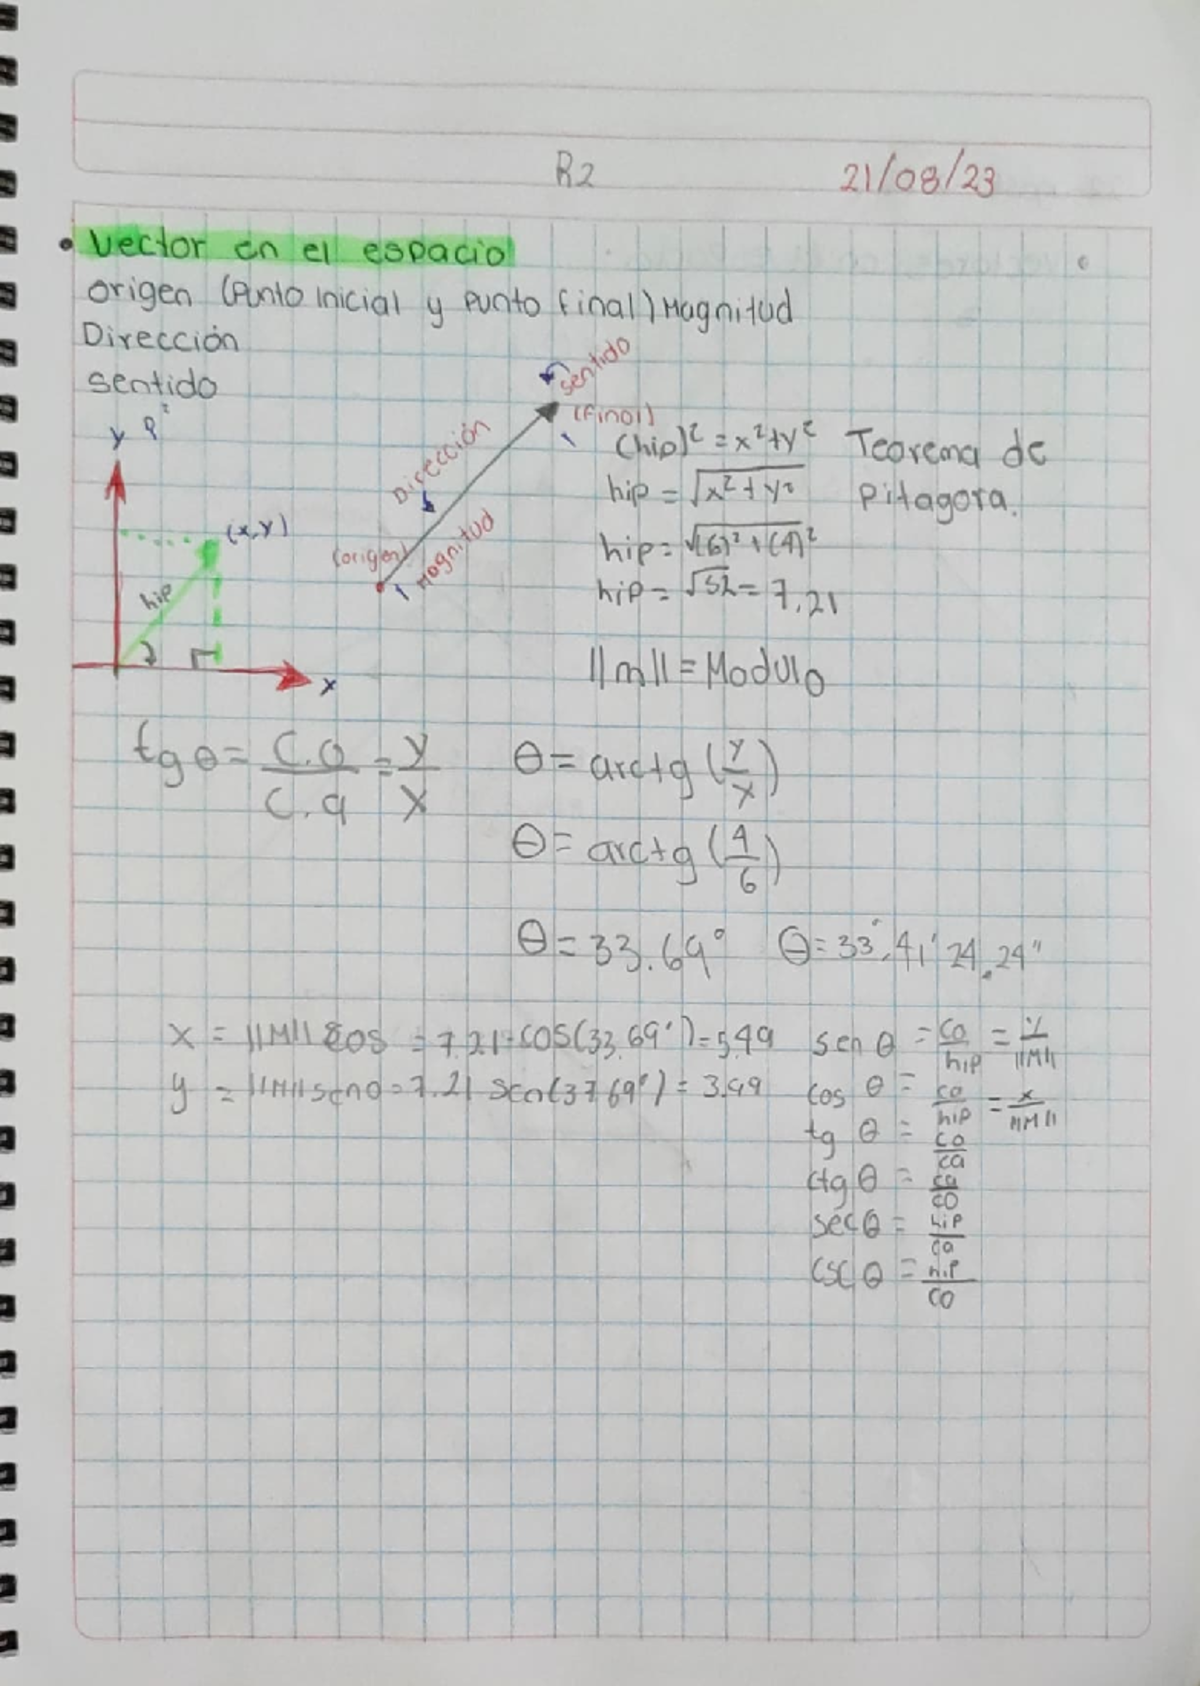 R2 21/08/23
• Vector en el espacio
origen (Punto Inicial y Punto final) Magnitud
Dirección
sentido
sentido
(Final)
Dirección
Magnitud
(origen)
y
(x,y)
hip
x
(hip)² = x²+y² Teorema de
hip = √x²+y² Pitagora.
hip = √(6)²+(4)²
hip = √52 = 7.21
||m|| = Modulo
tg θ = C.O/C.a = y/x
θ = arctg (y/x)
θ = arctg (4/6)
θ = 33.69° θ = 33°.41' 24.24"
x = ||M|| cos = 7.21 · cos(33.69°) = 5.99
y = ||M|| senθ = 7.21 sen(37.69°) = 3.99
sen θ = co/hip = y/||M||
cos θ = co/hip = x/||M||
tg θ = co/ca
ctg θ = ca/co
sec θ = hip/co
csc θ = hip/co